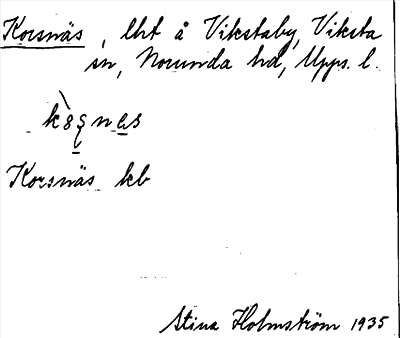 Korsnäs, lht å Vikstaby, Viksta
sn, Norunda hd, Upps. l.
Korsnäs kb
Stina Holmström 1935